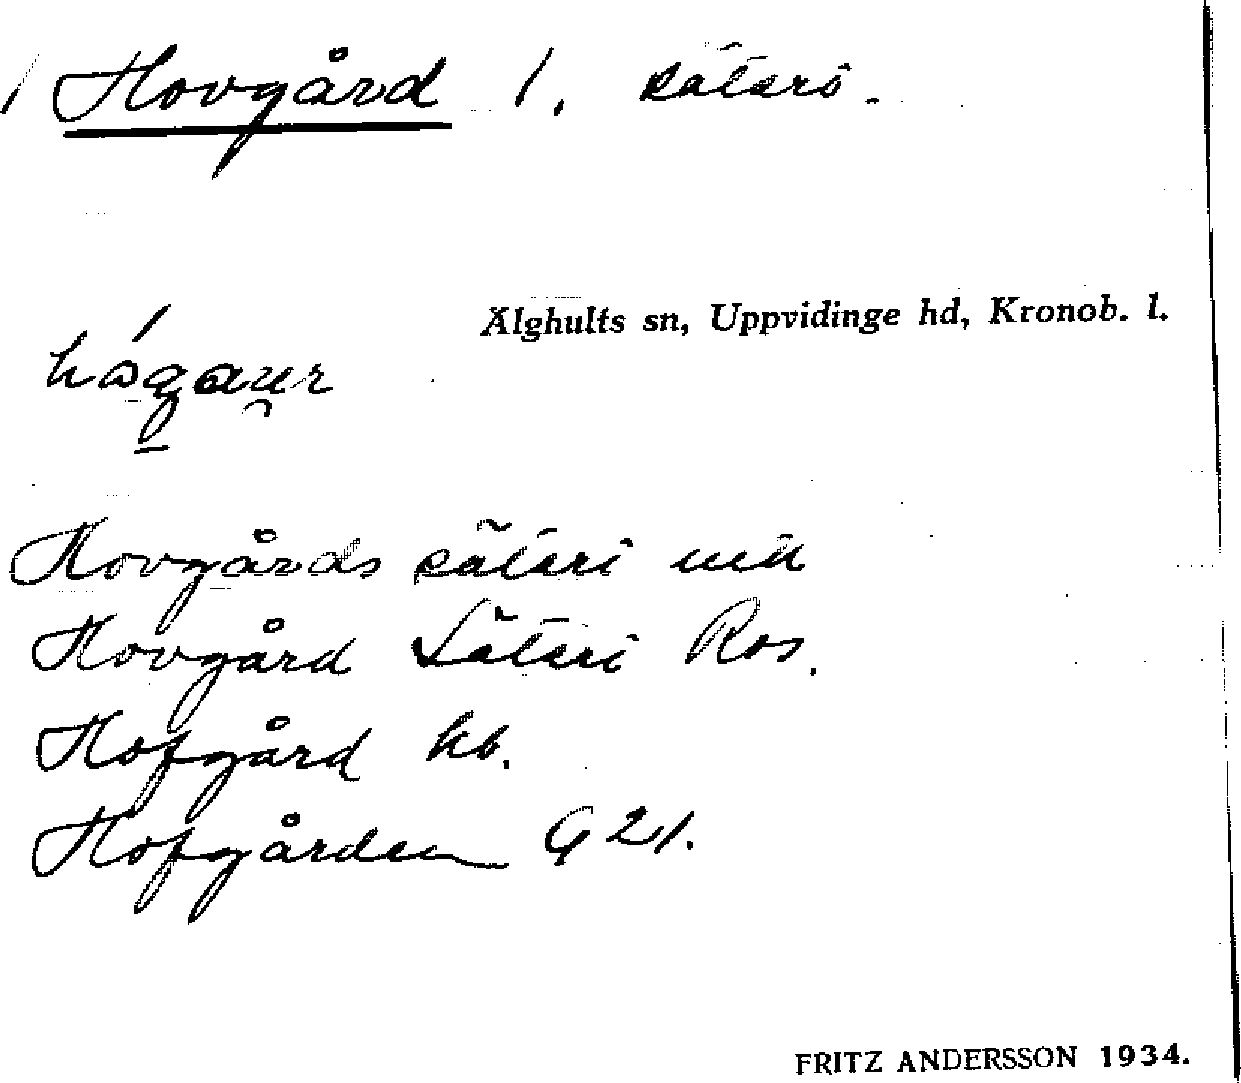 Hovgård 1. säteri.
Älghults sn, Uppvidinge hd, Kronob. l.
hågaur
Hovgårds säteri
Hovgård Säteri Ros.
Hofgård kb.
Hofgården G 21.
FRITZ ANDERSSON 1934.